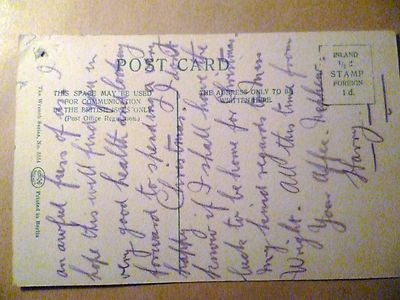 POST CARD
THIS SPACE MAY BE USED
FOR COMMUNICATION
IN THE BRITISH ISLES ONLY
(Post Office Regulation.)
THE ADDRESS ONLY TO BE
WRITTEN HERE.
INLAND
½d
STAMP
FOREIGN
1d.
The Wrench Series, No.
Printed in Berlin
an awful fuss of. I
hope this will find you in
very good health & looking
forward to spending a very
happy Christmas. I don't
know if I shall have the
luck to be home for Christmas.
my kind regards to Miss
Wright. All this time from
Your Affec. Nephew
Harry